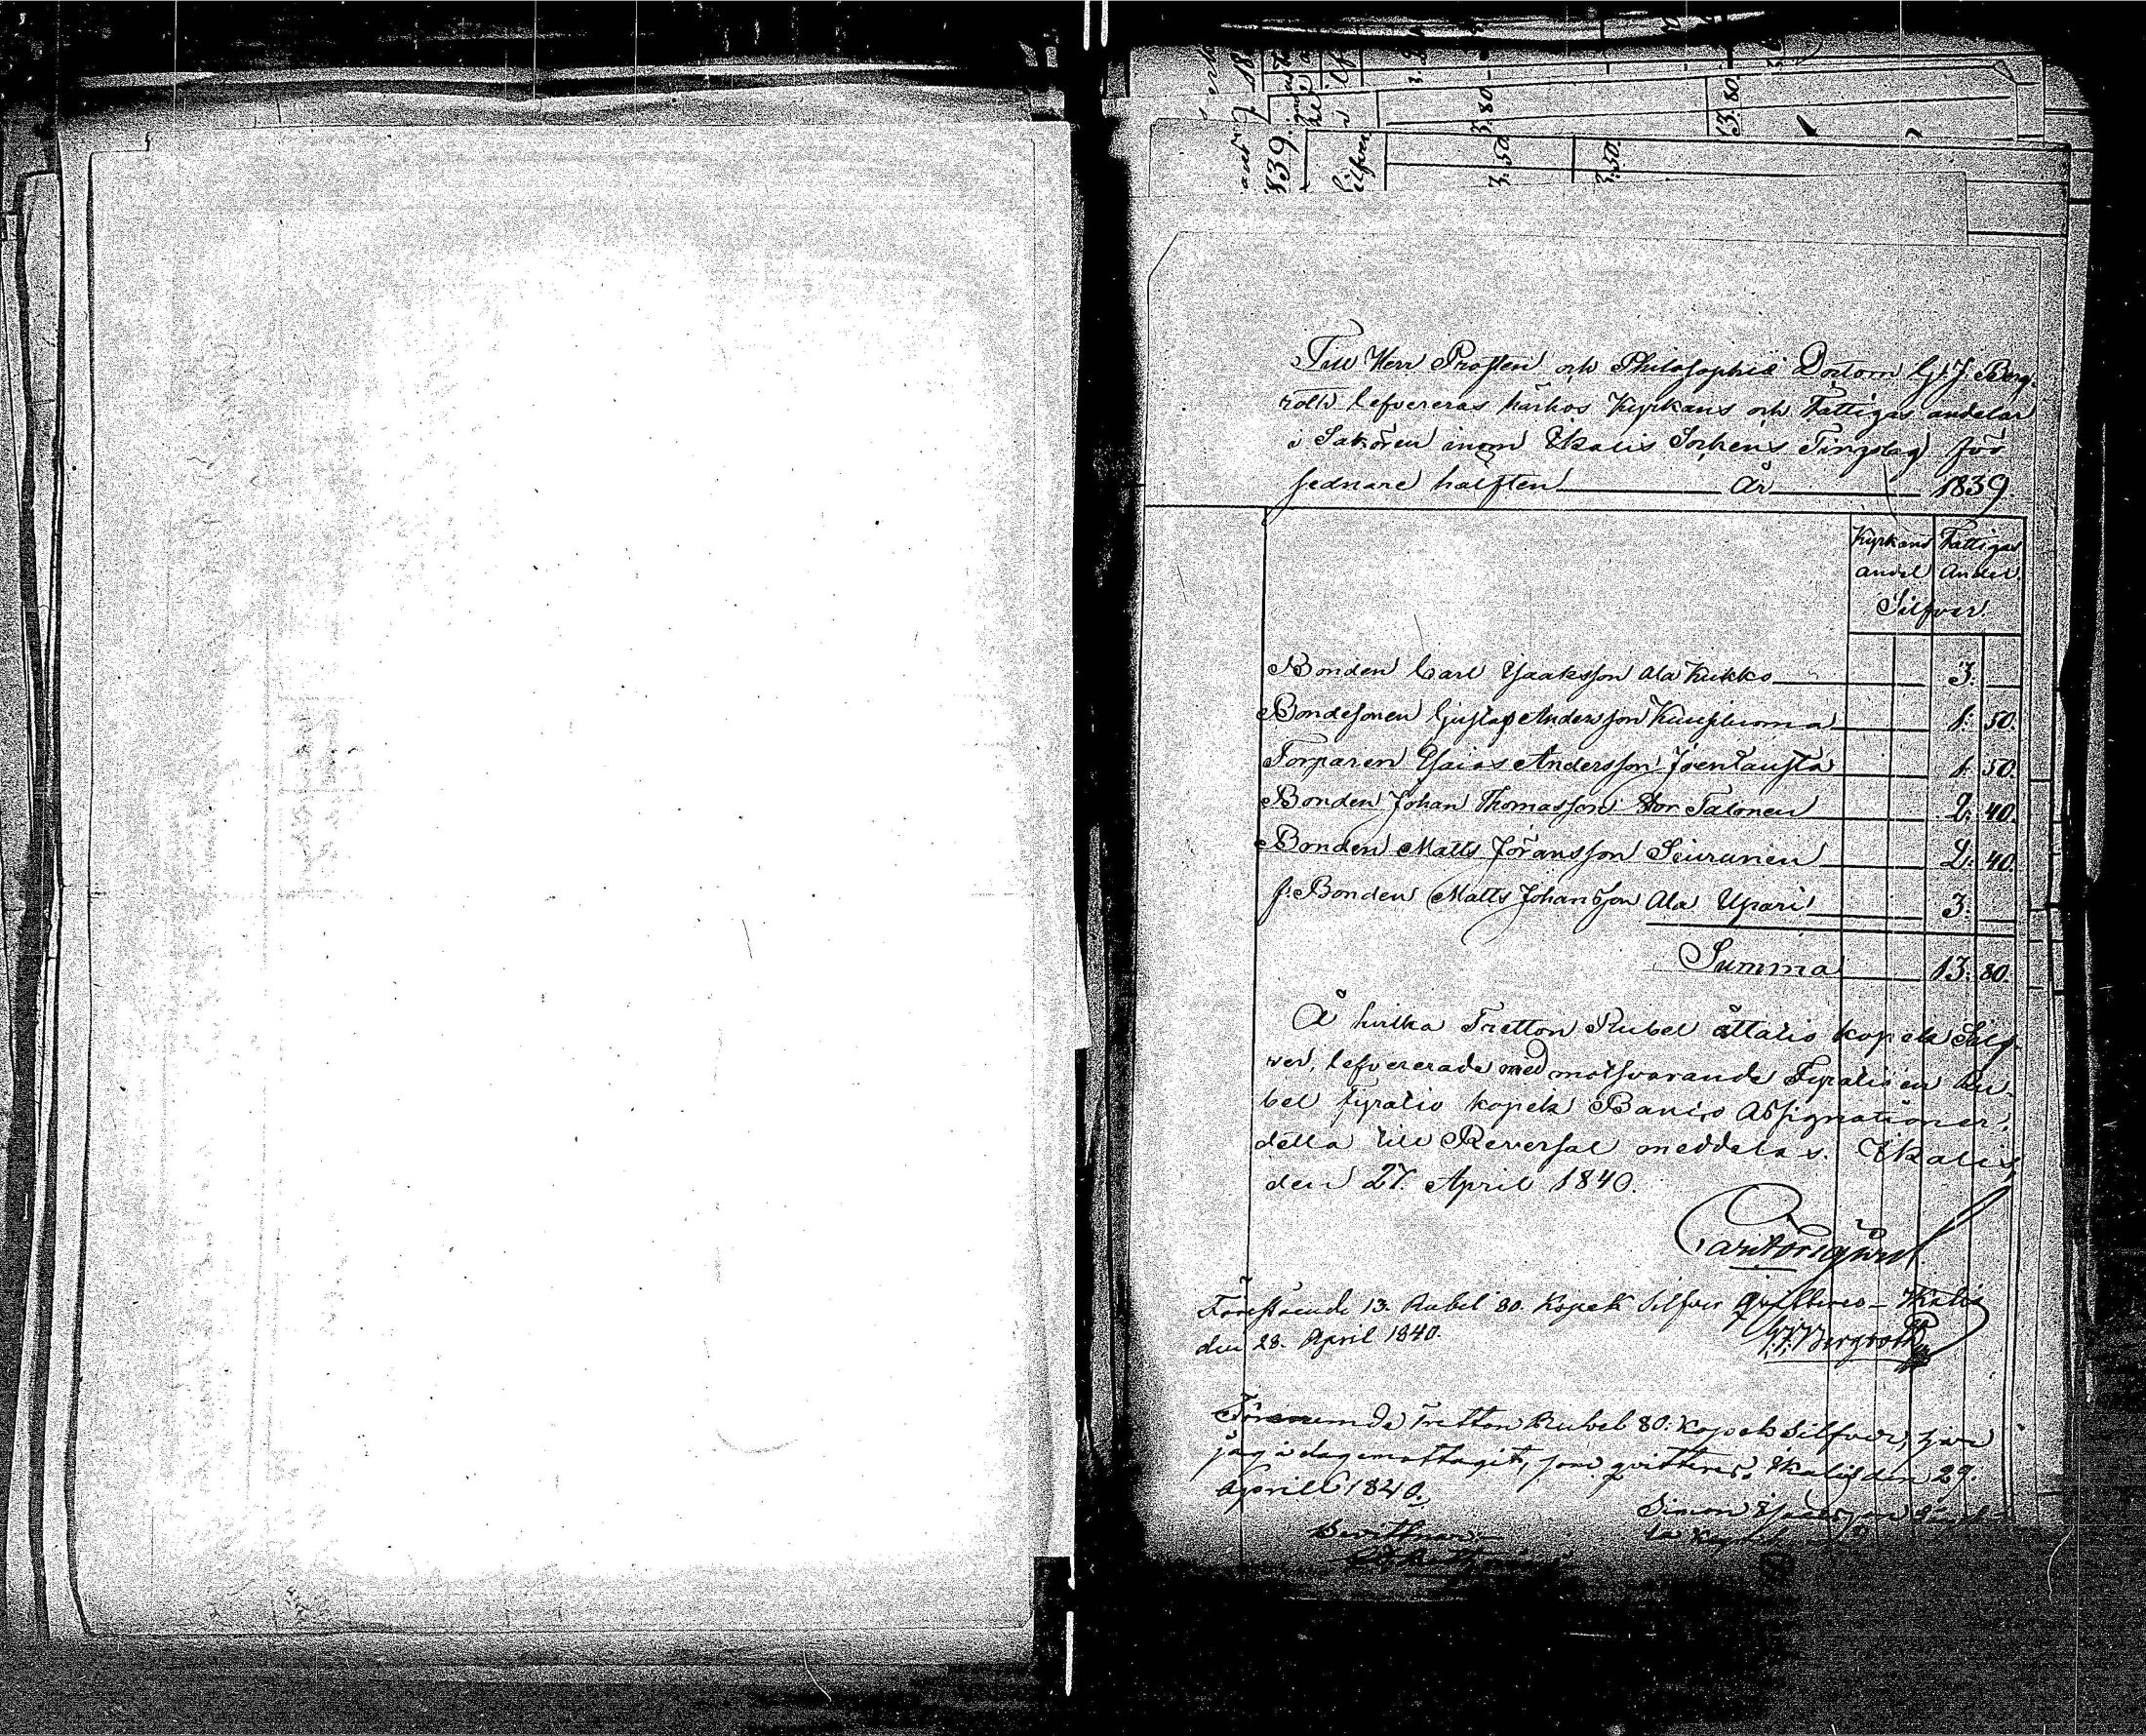 Till Herr Prosten och Philosophiæ Doctorn G: J: Berg-
roth lefvereras härhos Kyrkans och Fattigas andelar
i Sakören inom Ikalis Sockens Tingslag för
sednare hälften År 1839.
Kyrkans Fattigas
andel Andel.
Silfver.
Bonden Carl Isaaksson Ala Kukko 3. —
Bondesonen Gustaf Andersson Kuusiluoma 1. 50.
Torparen Esaias Andersson Joentausta 1. 50.
Bonden Johan Thomasson Stor Talonen 2. 40.
Bonden Matts Jöransson Seuranen 2. 40.
f. Bonden Matts Johansson Ala Upari 3. —
Summa 13. 80.
Å hvilka Tretton Rubel åttatio kopek Silf-
ver, lefvererade med motsvarande Fyratio en Ru-
bel fyratio kopek Banco Assignationer,
detta till Reversal meddelas. Ikalis
den 27. April 1840.
Förestående 13. Rubel 80. Kopek Silfver qvitteras – Ikalis
den 28. April 1840.
G. J. Bergroth
Förenemnde Tretton Rubel 80. Kopek Silfver, har
jag i dag emottagit, som qvitteras, Ikalis den 29.
Aprill 1840.
Simon
Bevittnar
3.80.
13.80.
1839.
3.50.
3.50.